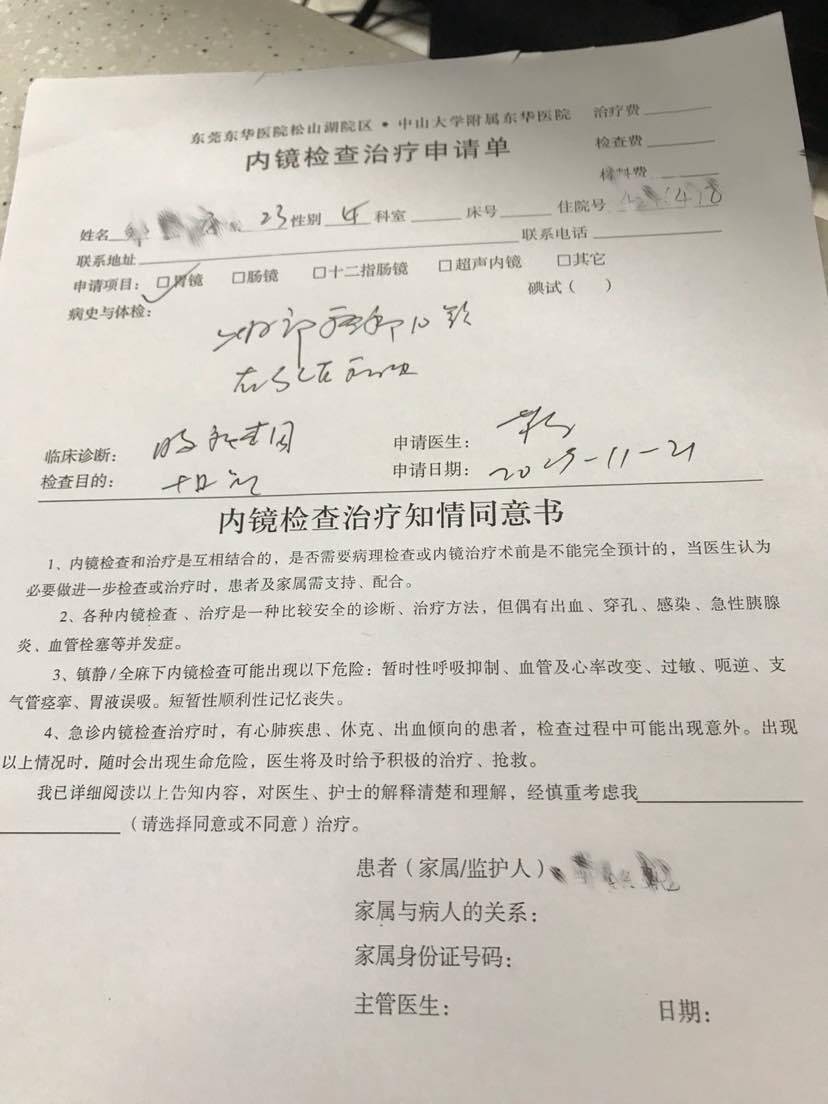 东莞东华医院松山湖院区 • 中山大学附属东华医院 治疗费
内镜检查治疗申请单 检查费
材料费
姓名 23 性别 女 科室 床号 住院号
联系地址 联系电话
申请项目: □胃镜 □肠镜 □十二指肠镜 □超声内镜 □其它
病史与体检: 碘试( )
临床诊断: 申请医生:
检查目的: 申请日期: 11-21
内镜检查治疗知情同意书
1、内镜检查和治疗是互相结合的，是否需要病理检查或内镜治疗术前是不能完全预计的，当医生认为
必要做进一步检查或治疗时，患者及家属需支持、配合。
2、各种内镜检查、治疗是一种比较安全的诊断、治疗方法，但偶有出血、穿孔、感染、急性胰腺
炎、血管栓塞等并发症。
3、镇静/全麻下内镜检查可能出现以下危险：暂时性呼吸抑制、血管及心率改变、过敏、呃逆、支
气管痉挛、胃液误吸。短暂性顺利性记忆丧失。
4、急诊内镜检查治疗时，有心肺疾患、休克、出血倾向的患者，检查过程中可能出现意外。出现
以上情况时，随时会出现生命危险，医生将及时给予积极的治疗、抢救。
我已详细阅读以上告知内容，对医生、护士的解释清楚和理解，经慎重考虑我
（请选择同意或不同意）治疗。
患者（家属/监护人）
家属与病人的关系：
家属身份证号码：
主管医生： 日期：